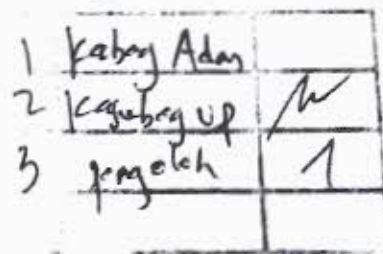 1 Kabag Adm
2 Kasubag UP
3 pengolah